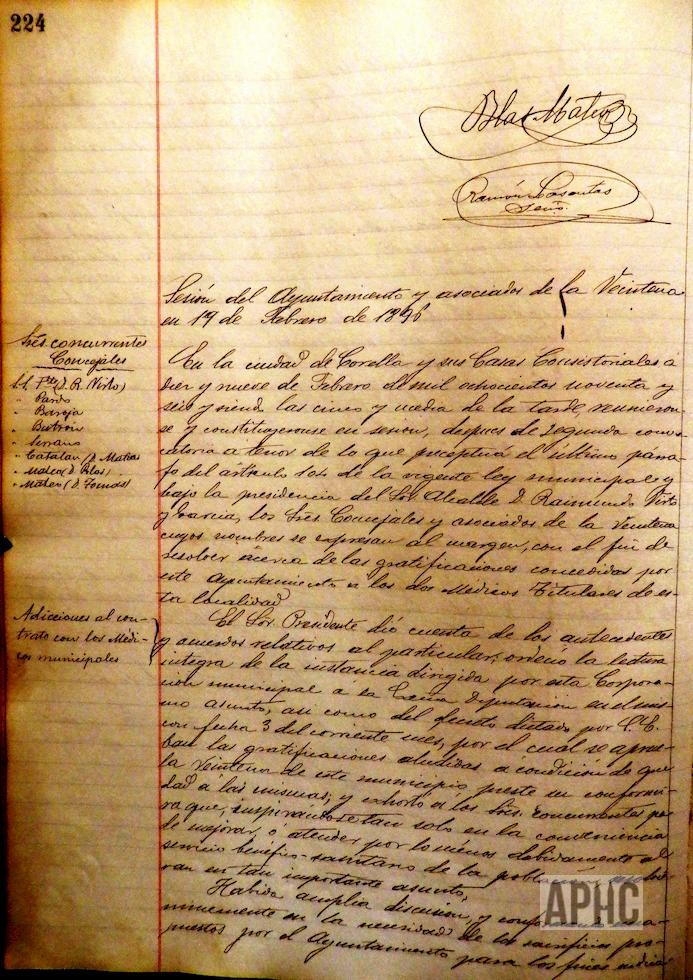 224
Blas Mateo
Ramón Lasantas
Srio.
Sesión del Ayuntamiento y asociados de la Veintena
en 19 de Febrero de 1896
Sres. concurrentes
Concejales
S.S. Pte (D. R. Virto)
" Pardo
" Baroja
" Butrón
" Serrano
" Catalan (D. Matias
" Mateo (D. Blas)
" Mateo (D. Tomas)
En la ciudad de Corella y sus Casas Consistoriales a
diez y nueve de Febrero de mil ochocientos noventa y
seis y siendo las cinco y media de la tarde, reunieron-
se y constituyeronse en sesion, despues de segunda convo-
catoria a tenor de lo que preceptúa el último párra-
fo del artículo 104 de la vigente ley municipal y
bajo la presidencia del Sr. Alcalde D. Raimundo Virto
y Garcia, los Sres. Concejales y asociados de la Veintena
cuyos nombres se expresan al margen, con el fin de
resolver acerca de las gratificaciones concedidas por
este Ayuntamiento a los dos Médicos Titulares de es-
ta localidad
Adiciones al con-
trato con los Médi-
cos municipales
El Sr. Presidente dió cuenta de los antecedentes
y acuerdos relativos al particular; ordenó la lectura
integra de la instancia dirigida por esta Corpora-
ción municipal a la Excma Diputación en el mis-
mo asunto, asi como del decreto dictado por S.E.
con fecha 3 del corriente mes, por el cual se aprue-
ban las gratificaciones aludidas a condición de que
la Veintena de este municipio preste su conformi-
dad á las mismas; y exhortó a los Sres. concurrentes pa-
ra que, inspirándose tan solo en la conveniencia
de mejorar, ó atender por lo menos debidamente al
servicio benéfico-sanitario de la
ran en tan importante asunto.
Habida amplia discusion, y
nimemente en la necesidad de los sacrificios pro-
puestos por el Ayuntamiento para los fines indica-
APHC